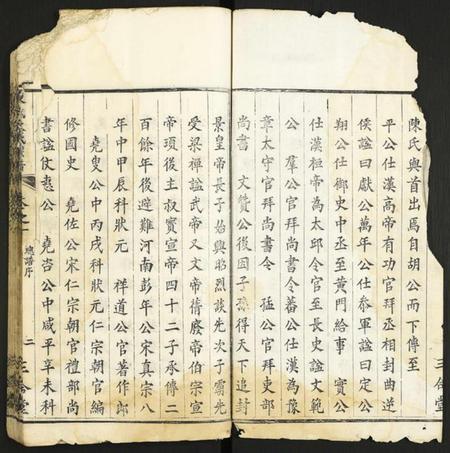 陳氏與首出焉自胡公而下傳至
平公仕漢高帝有功官拜丞相封曲逆
侯諡曰獻公萬年公仕叅軍諡曰定公
翔公仕御史中丞至黃門給事　寔公
仕漢桓帝為太邱令官至長史諡文範
公　羣公官拜尚書令蕃公仕漢為豫
章太守官拜尚書令　猛公官拜吏部
尚書　文贊公後因子孫得天下追封
景皇帝長子始興昭烈談先次子霸先
受梁禪諡武帝又文帝蒨廢帝伯宗宣
帝頊後主叔寶宣帝四十二子承傳二
百餘年後避難河南彭年公宋真宗八
年中甲辰科狀元　祥道公官著作郎
堯叟公中丙戌科狀元仁宗朝官編
修國史　堯佐公宋仁宗朝官禮部尚
書諡文惠公　堯咨公中咸平辛未科
總譜序
二
三合堂